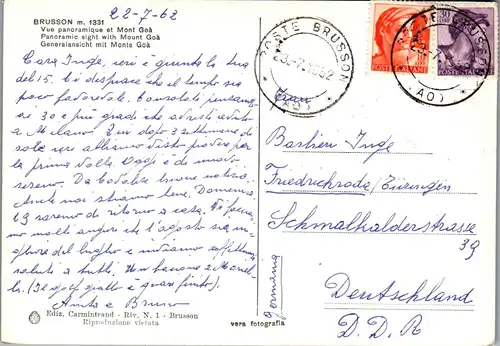 22-7-62
BRUSSON m. 1331
Vue panoramique et Mont Goà
Panoramic sight with Mount Goà
Generalansicht mit Monte Goà
Cara Inge, ieri è giunta la tua
del 15. Ci dispiace che il tempo sia
poco favorevole. Consolati pensando
ai 30 e più gradi che avresti avuto
a Milano. Qui dopo 3 settimane di
sole ieri abbiamo visto piovere per
la prima volta. Oggi è di nuovo
sereno. Da buone notizie.
Anche noi stiamo bene. Domenica
29 saremo di ritorno a casa. Vi faccia-
mo molti auguri che l'agosto sia mi-
gliore del luglio e inviamo affettuosi
saluti a tutti. Un bacione a
(Il golf giallo è quasi finito).
Anita e Bruno
Ediz. Carmintrand - Riv. N. 1 - Brusson
Riproduzione vietata
vera fotografia
POSTE BRUSSON
23.-7.1962
(AO)
POSTE ITALIANE
30 LIRE
POSTE ITALIANE
POSTE BRUSSON
(AO)
Barbieri Inge
Friedrichroda/Türingen
Schmalkalderstrasse
39
Deutschland
D.D.R
Germania